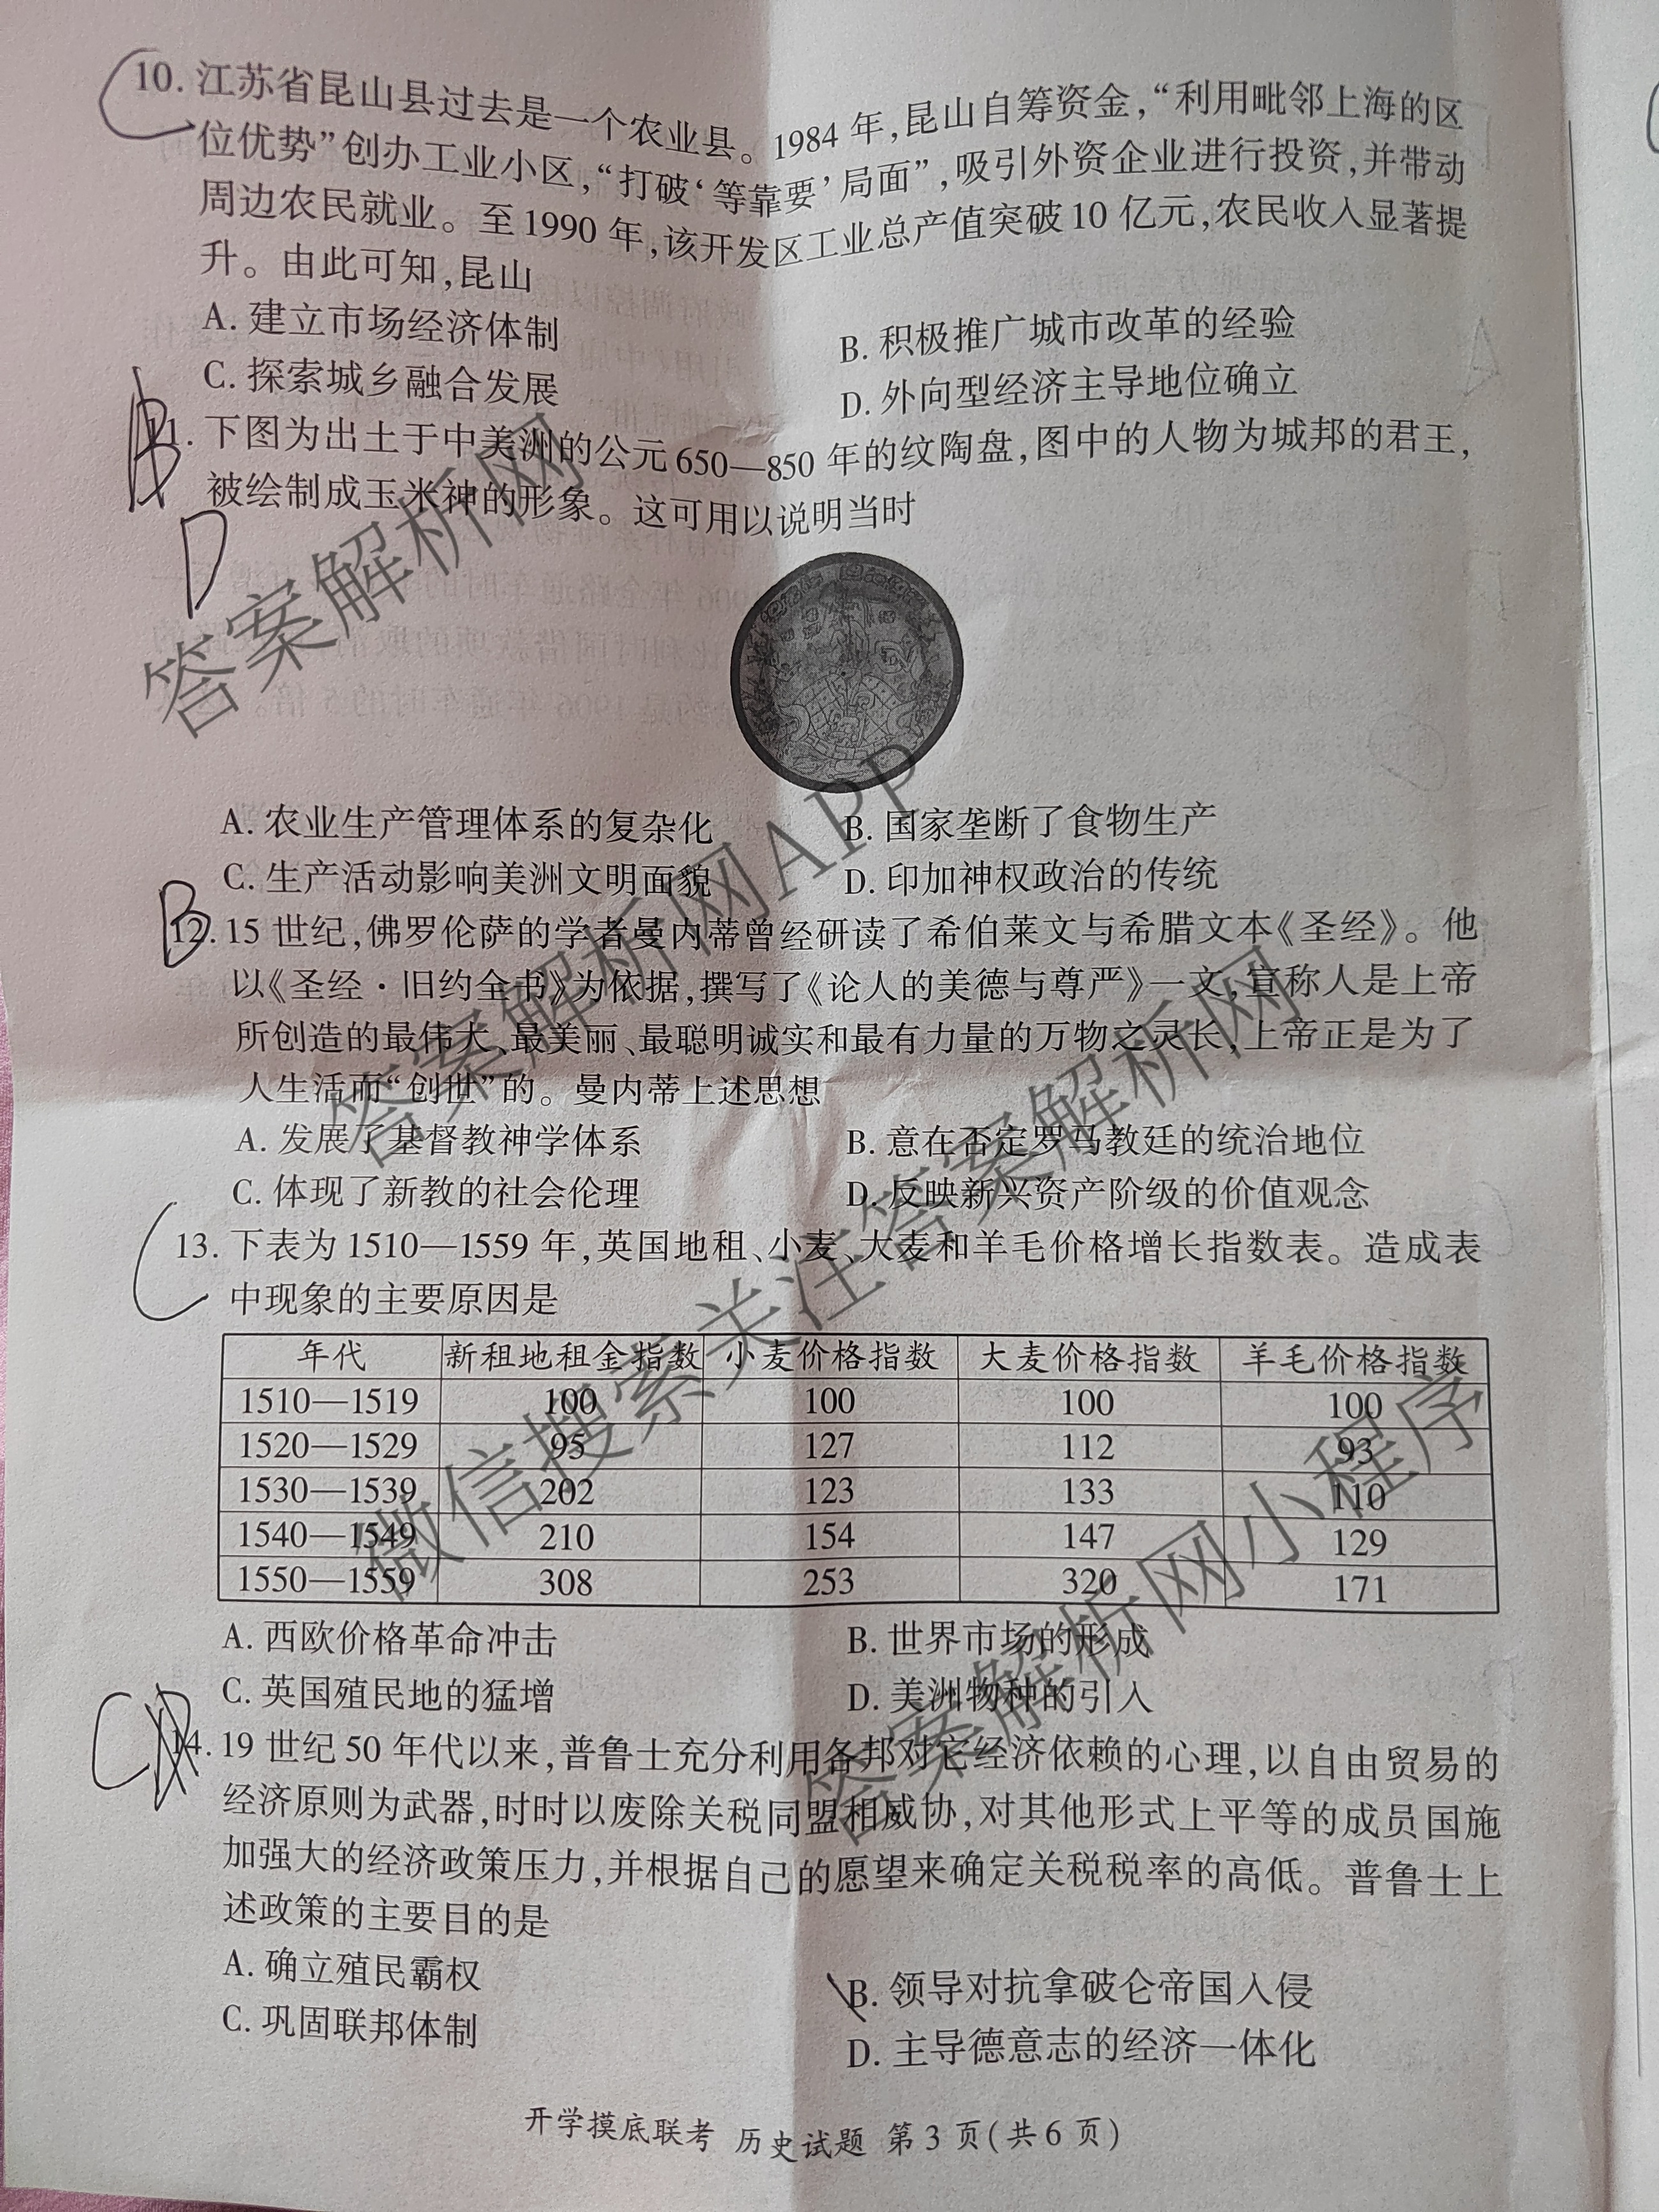 10. 江苏省昆山县过去是一个农业县。1984 年,昆山自筹资金,“利用毗邻上海的区
位优势”创办工业小区,“打破‘等靠要’局面”,吸引外资企业进行投资,并带动
周边农民就业。至 1990 年,该开发区工业总产值突破 10 亿元,农民收入显著提
升。由此可知,昆山
A. 建立市场经济体制 B. 积极推广城市改革的经验
C. 探索城乡融合发展 D. 外向型经济主导地位确立
C
11. 下图为出土于中美洲的公元 650—850 年的纹陶盘,图中的人物为城邦的君王,
被绘制成玉米神的形象。这可用以说明当时
D
A. 农业生产管理体系的复杂化 B. 国家垄断了食物生产
C. 生产活动影响美洲文明面貌 D. 印加神权政治的传统
B
12. 15 世纪,佛罗伦萨的学者曼内蒂曾经研读了希伯莱文与希腊文本《圣经》。他
以《圣经·旧约全书》为依据,撰写了《论人的美德与尊严》一文,宣称人是上帝
所创造的最伟大、最美丽、最聪明诚实和最有力量的万物之灵长,上帝正是为了
人生活而“创世”的。曼内蒂上述思想
A. 发展了基督教神学体系 B. 意在否定罗马教廷的统治地位
C. 体现了新教的社会伦理 D. 反映新兴资产阶级的价值观念
C
13. 下表为 1510—1559 年,英国地租、小麦、大麦和羊毛价格增长指数表。造成表
中现象的主要原因是
年代 新租地租金指数 小麦价格指数 大麦价格指数 羊毛价格指数
1510—1519 100 100 100 100
1520—1529 95 127 112 93
1530—1539 202 123 133 110
1540—1549 210 154 147 129
1550—1559 308 253 320 171
A. 西欧价格革命冲击 B. 世界市场的形成
C. 英国殖民地的猛增 D. 美洲物种的引入
C
14. 19 世纪 50 年代以来,普鲁士充分利用各邦对它经济依赖的心理,以自由贸易的
经济原则为武器,时时以废除关税同盟相威胁,对其他形式上平等的成员国施
加强大的经济政策压力,并根据自己的愿望来确定关税税率的高低。普鲁士上
述政策的主要目的是
A. 确立殖民霸权 B. 领导对抗拿破仑帝国入侵
C. 巩固联邦体制 D. 主导德意志的经济一体化
开学摸底联考 历史试题 第 3 页(共 6 页)
答案解析网
答案解析网APP
微信搜索关注答案解析网
答案解析网小程序